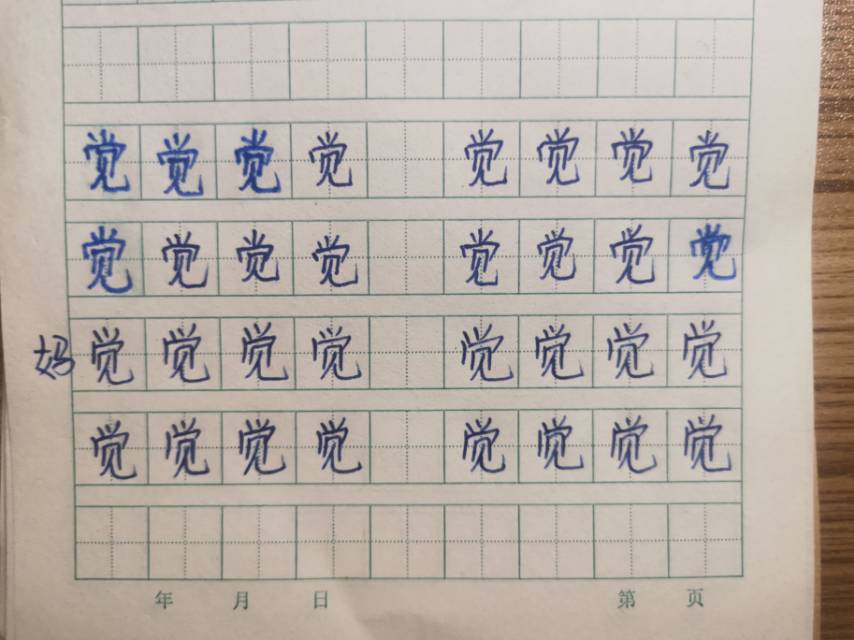 觉觉觉觉觉觉觉觉
觉觉觉觉觉觉觉觉
妈觉觉觉觉觉觉觉觉
觉觉觉觉觉觉觉觉
年 月 日 第 页